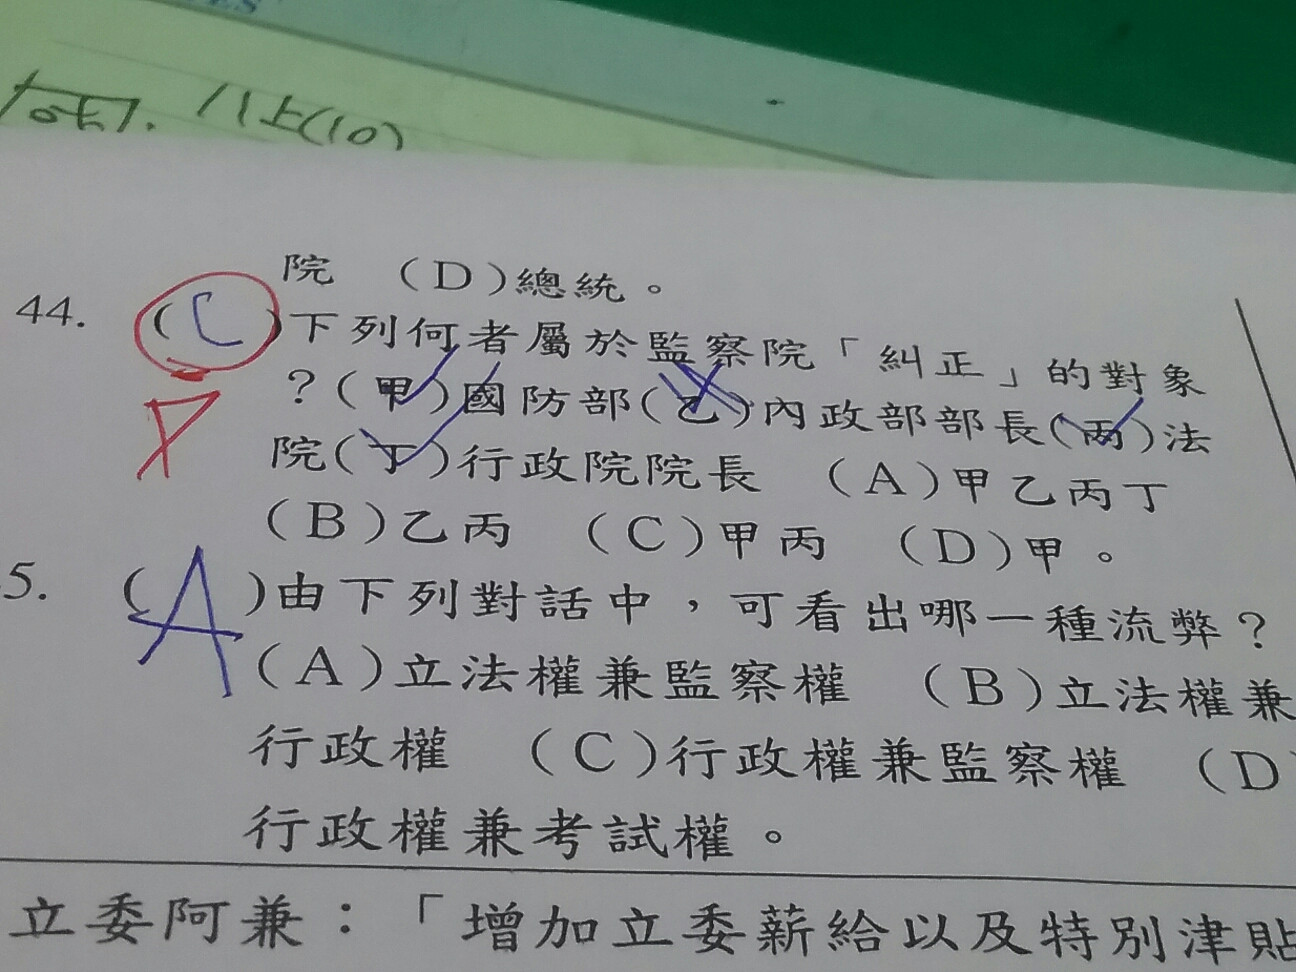 ES
11上(10)
院 (D)總統。
44. (C)下列何者屬於監察院「糾正」的對象
?(甲)國防部(乙)內政部部長(丙)法
院(丁)行政院院長 (A)甲乙丙丁
(B)乙丙 (C)甲丙 (D)甲。
5. (A)由下列對話中,可看出哪一種流弊?
(A)立法權兼監察權 (B)立法權兼
行政權 (C)行政權兼監察權 (D
行政權兼考試權。
立委阿兼:「增加立委薪給以及特別津貼